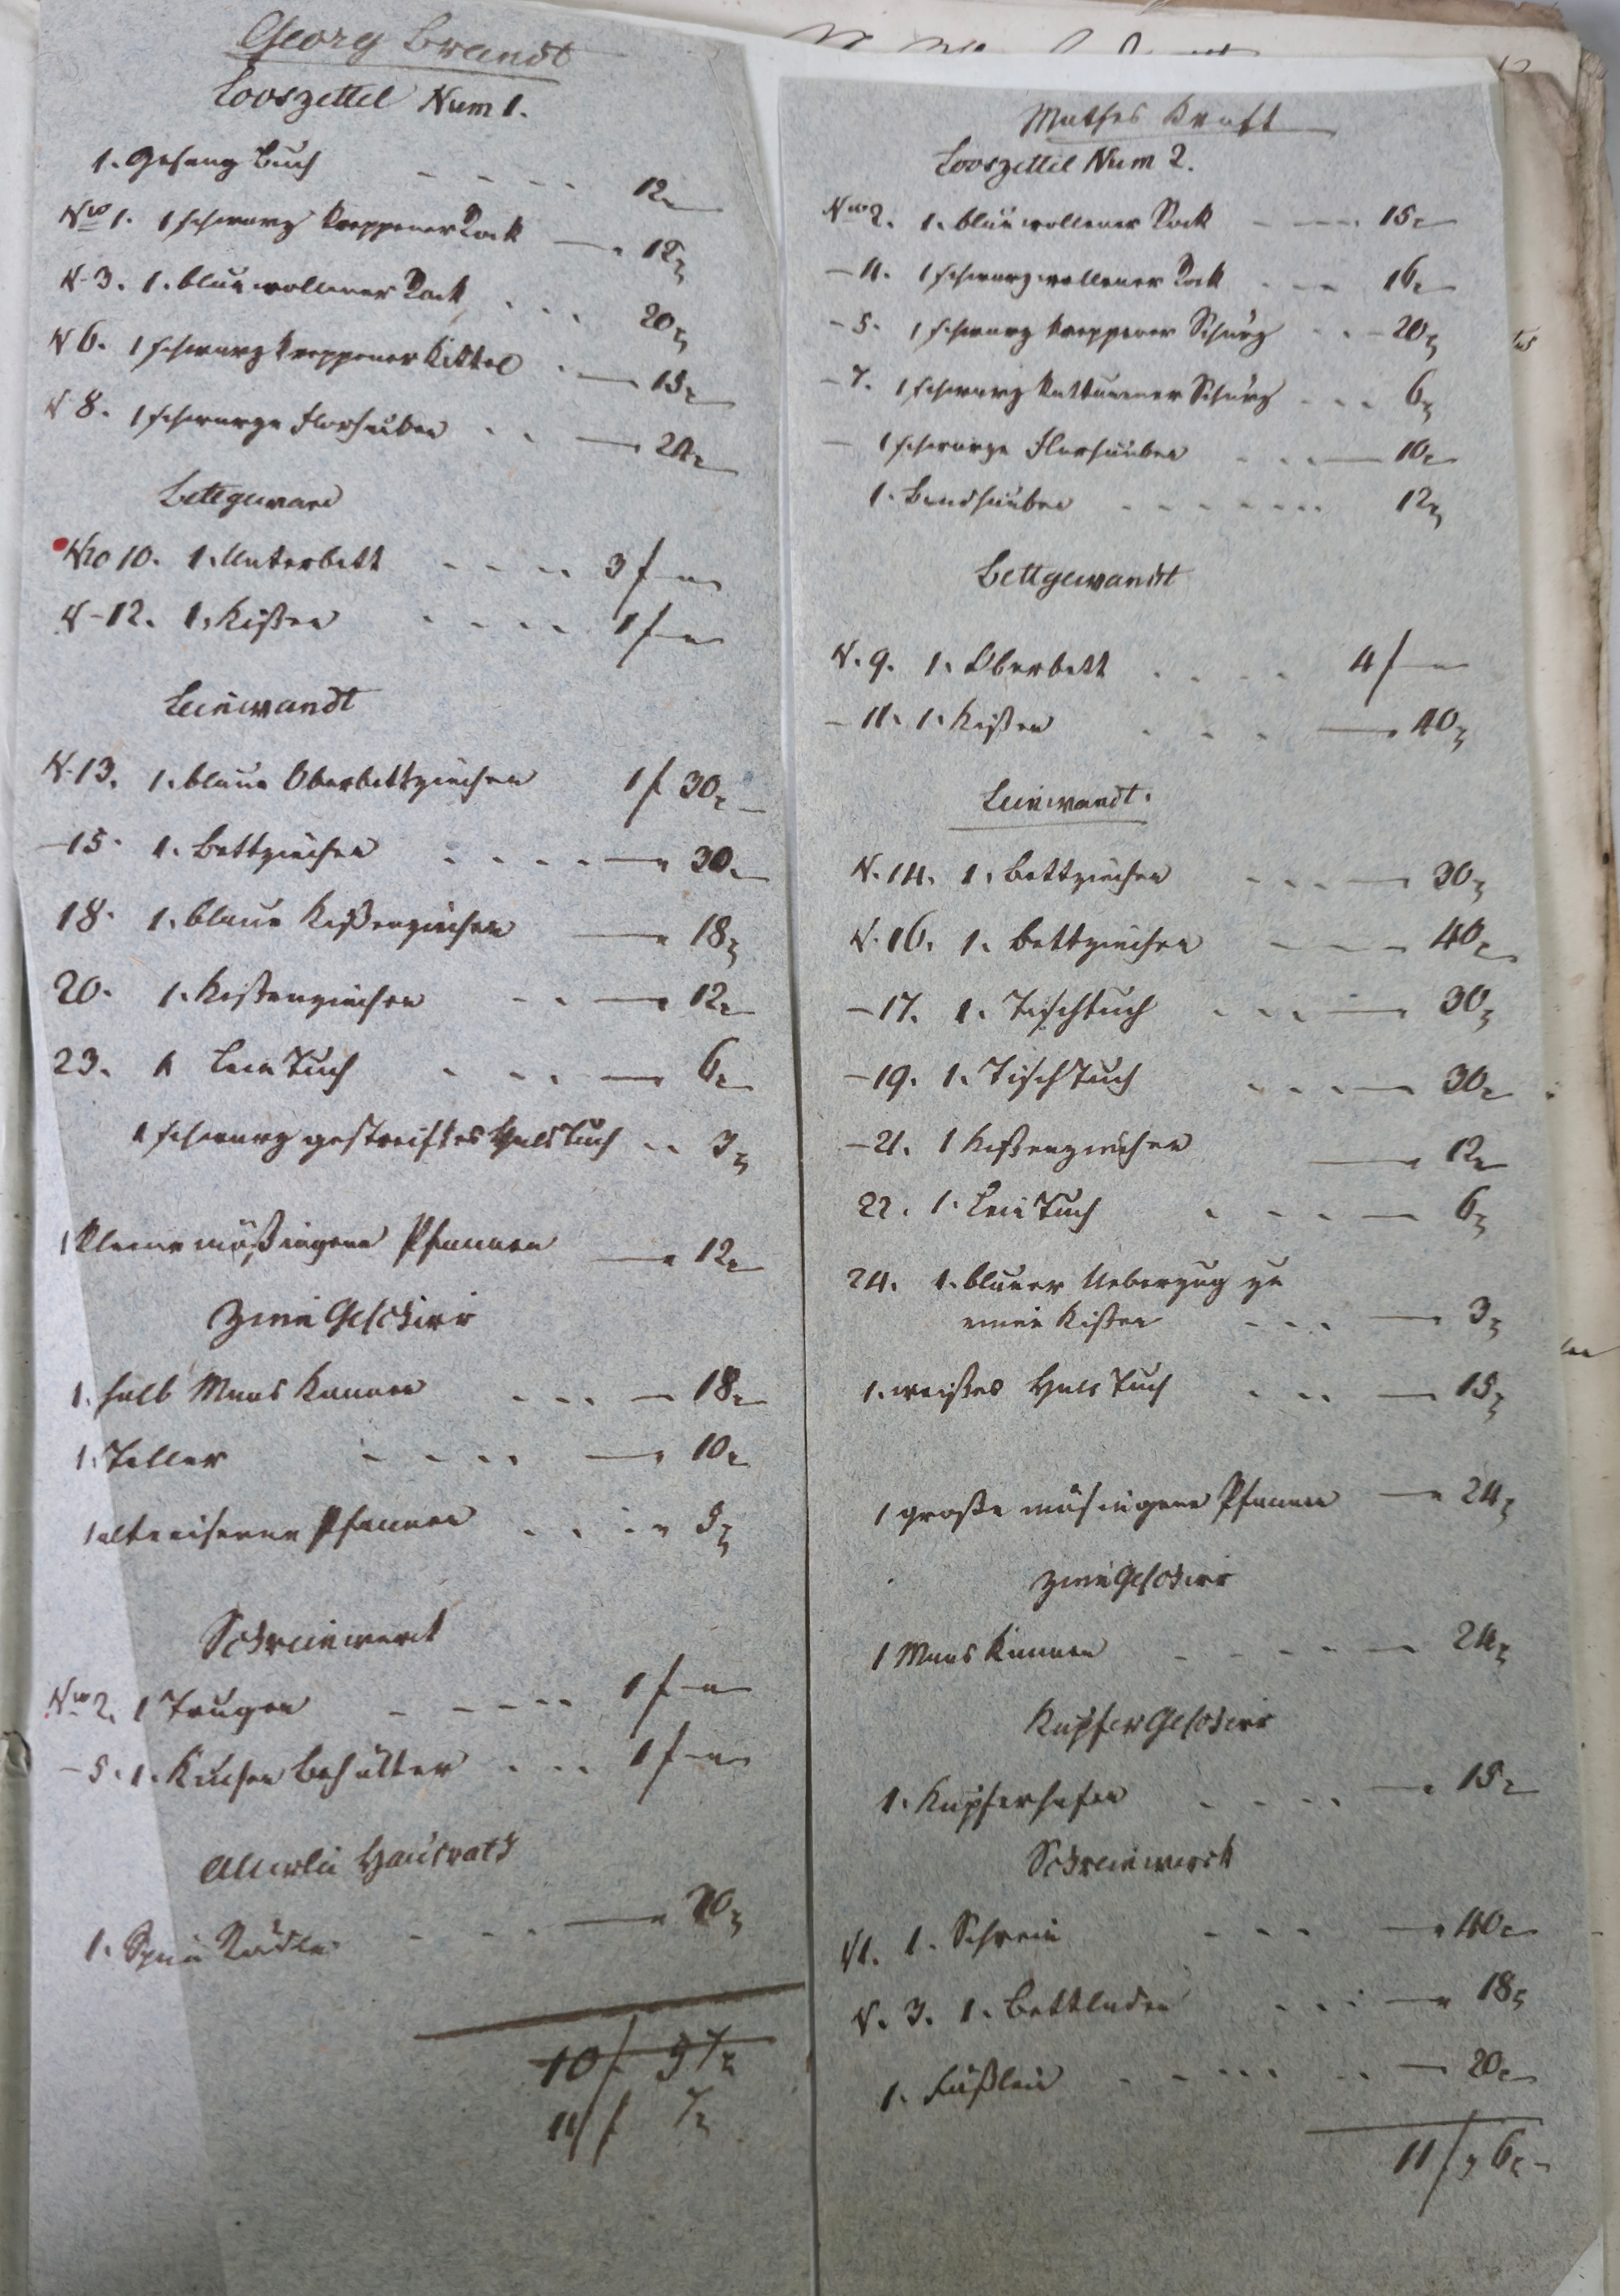 Georg Brandt
Looszettel Num 1.
1. Gesang Buch - - - - 12 x
Nro 1. 1 schwarz kreppener Rock — 12 x
N. 3. 1. blau wollener Rock . . . 20 x
N 6. 1 schwarz kreppener Kittel . — 15 x
N 8. 1 schwarze Florhauben . . — 24 x
Bettgewand
Nro 10. 1. Unterbett - - - - 3 f — "
N - 12. 1. Kißen - - - - 1 f — "
Leinwandt
N. 13. 1. blaue Oberbettziechen 1 f 30 x
- 15. 1. Bettziechen - - - - — 30 x
18. 1. blaue Kißenziechen — 18 x
20. 1. Kißenziechen - - — 12 x
23. 1 LeinTuch - - - — 6 x
1 schwarz gestreiftes HalsTuch - - 3 x
1 kleine mößingene Pfannen — 12 x
Zinn Geschirr
1. halb Maas Kannen - - - — 18 x
1. Teller - - - - — 10 x
1 alte eiserne Pfannen . . . " 5 x
Schreinwerck
Nro 2. 1 Trugen - - - - - 1 f — "
- 5. 1. Kuchen Behälter . . . 1 f — "
Allerlei Hausrath
1. Spinn Rädle - - - — 20 x
10 f 57 x
11 f 7 x
Mathes Kraft
Looszettel Num 2.
Nro 2. 1. blau wollener Rock - - - 15 x
- 4. 1 schwarz wollener Rock - - - 16 x
- 5. 1 schwarz kreppener Schurz - - - 20 x
- 7. 1 schwarz kattunener Schurz - - - 6 x
— 1 schwarze Florhauben - - - — 10 x
1. Bandhauben - - - - - - - 12 x
Bettgewandt
N. 9. 1. Oberbett - - - - 4 f —
- 11. 1. Kißen - - - — 40 x
Leinwandt.
N. 14. 1. Bettziechen - - - — 30 x
N. 16. 1. Bettziechen - - - 40 x
- 17. 1. Tischtuch - - - — 30 x
- 19. 1. TischTuch - - - — 30 x
- 21. 1 Kißenziechen — 12 x
22. 1. LeinTuch - - - - — 6 x
24. 1. blauer Ueberzug zu
einen Kißen - - - — 3 x
1. weißes Hals Tuch - - - — 15 x
1 große mösingene Pfannen — 24 x
Zinn Geschirr
1 Maas Kannen - - - - — 24 x
Kupfer Geschirr
1. Kupferhafen - - - - — " 15 x
Schreinwerck
N 1. 1. Schrein - - - — " 40 x
N. 3. 1. Bettladen - - - — " 18 x
1. Fäßlein - - - - - - — 20 x
11 f 6 x